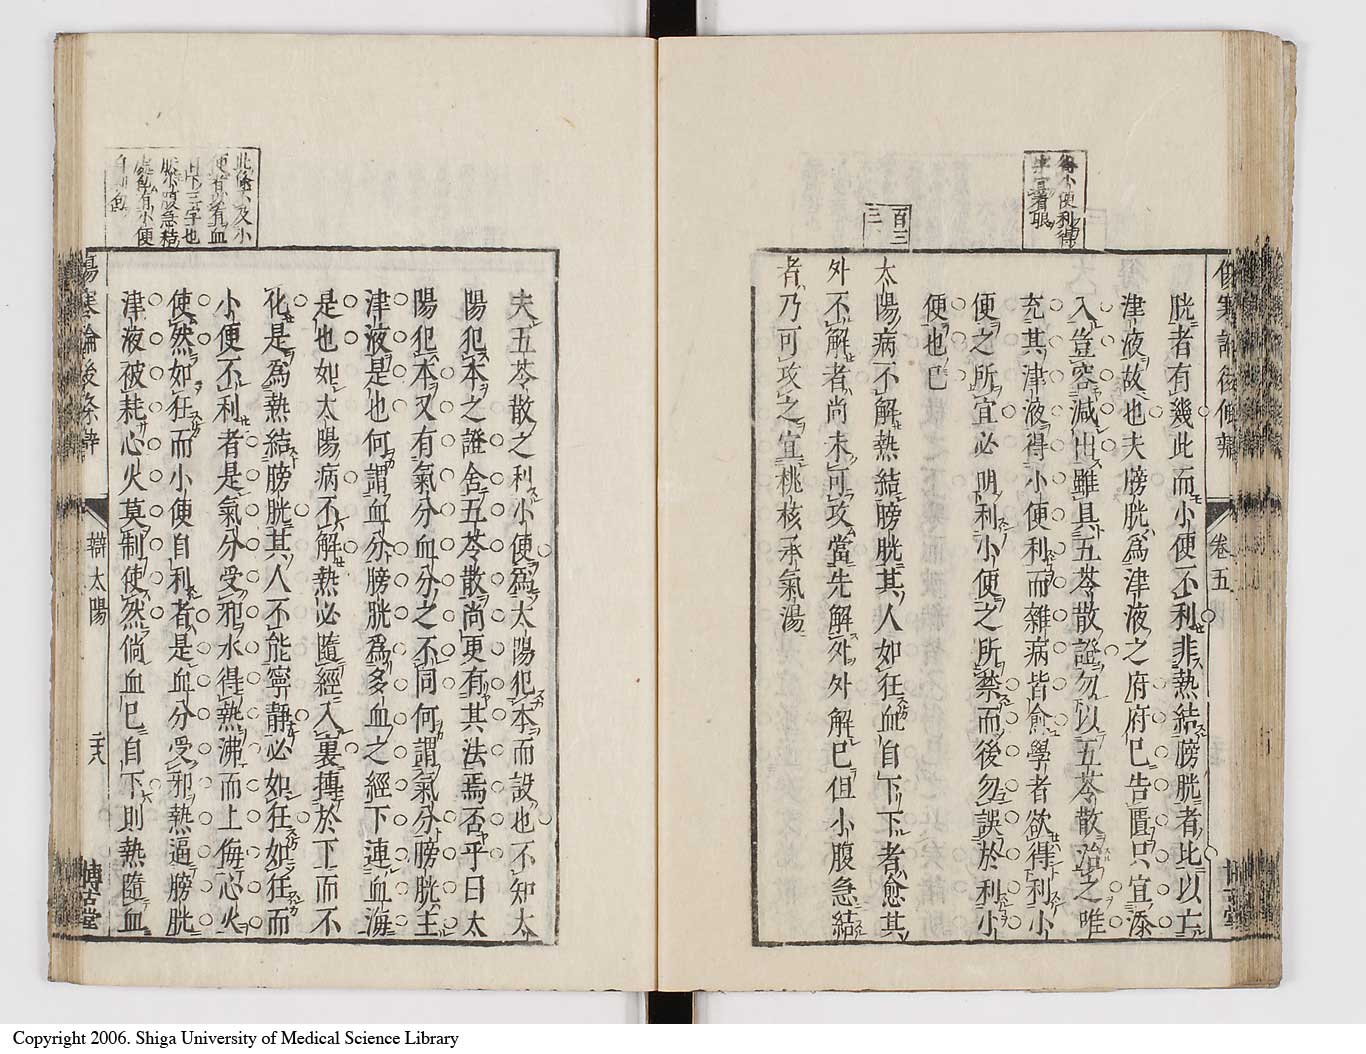 得小便利得
字宜着眼
百三
二
胱者有幾此而小便不利非熱結膀胱者比以亡
津液故也夫膀胱為津液之府府已告匱只宜添
入豈容減出雖具五苓散證勿以五苓散治之唯
充其津液得小便利而雜病皆愈學者欲得利小
便之所宜必明利小便之所禁而後勿誤於利小
便也已
太陽病不解熱結膀胱其人如狂血自下下者愈其
外不解者尚未可攻當先解外外解已但小腹急結
者乃可攻之宜桃核承氣湯
卷五
夫五苓散之利小便為太陽犯本而設也不知太
陽犯本之證舍五苓散尚更有其法焉否乎曰太
陽犯本又有氣分血分之不同何謂氣分膀胱主
津液是也何謂血分膀胱為多血之經下連血海
是也如太陽病不解熱必隨經入裏摶於下而不
化是為熱結膀胱其人不能寧靜必如狂如狂而
小便不利者是氣分受邪水得熱沸而上侮心火
使然如狂而小便自利者是血分受邪熱逼膀胱
津液被耗心火莫制使然倘血已自下則熱隨血
傷寒論後條辨
辯太陽
二十八
博古堂
Copyright 2006. Shiga University of Medical Science Library